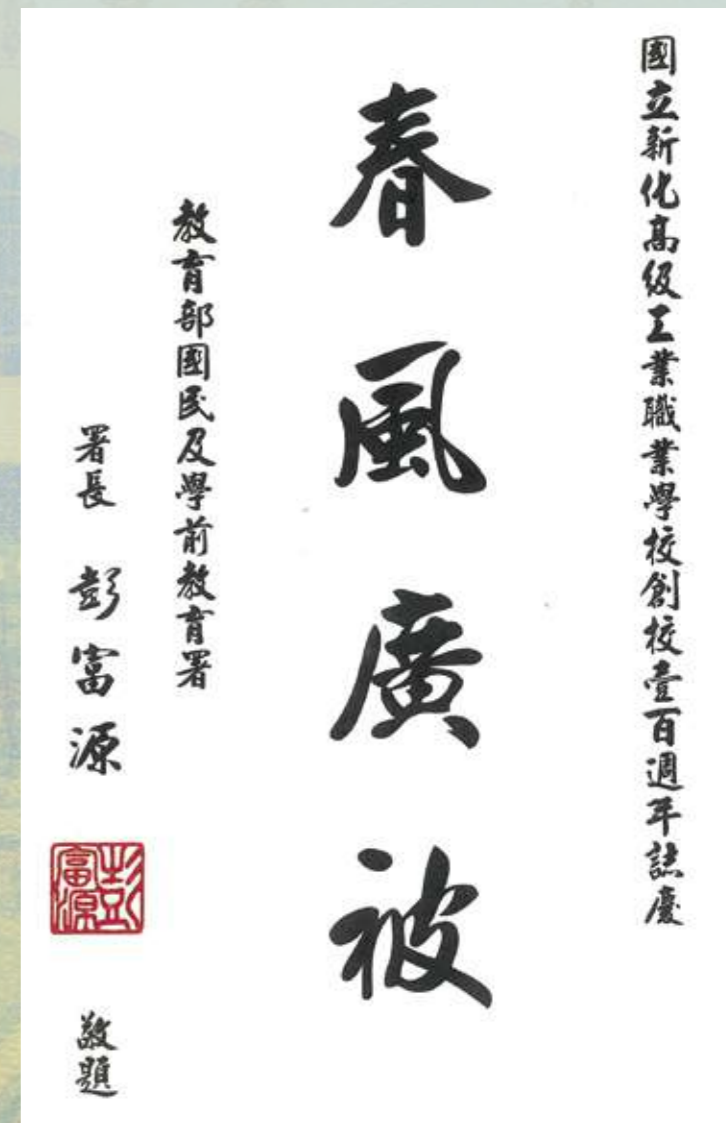 國立新化高級工業職業學校創校壹百週年誌慶
春風廣被
教育部國民及學前教育署
署長 彭富源
彭富源
敬題